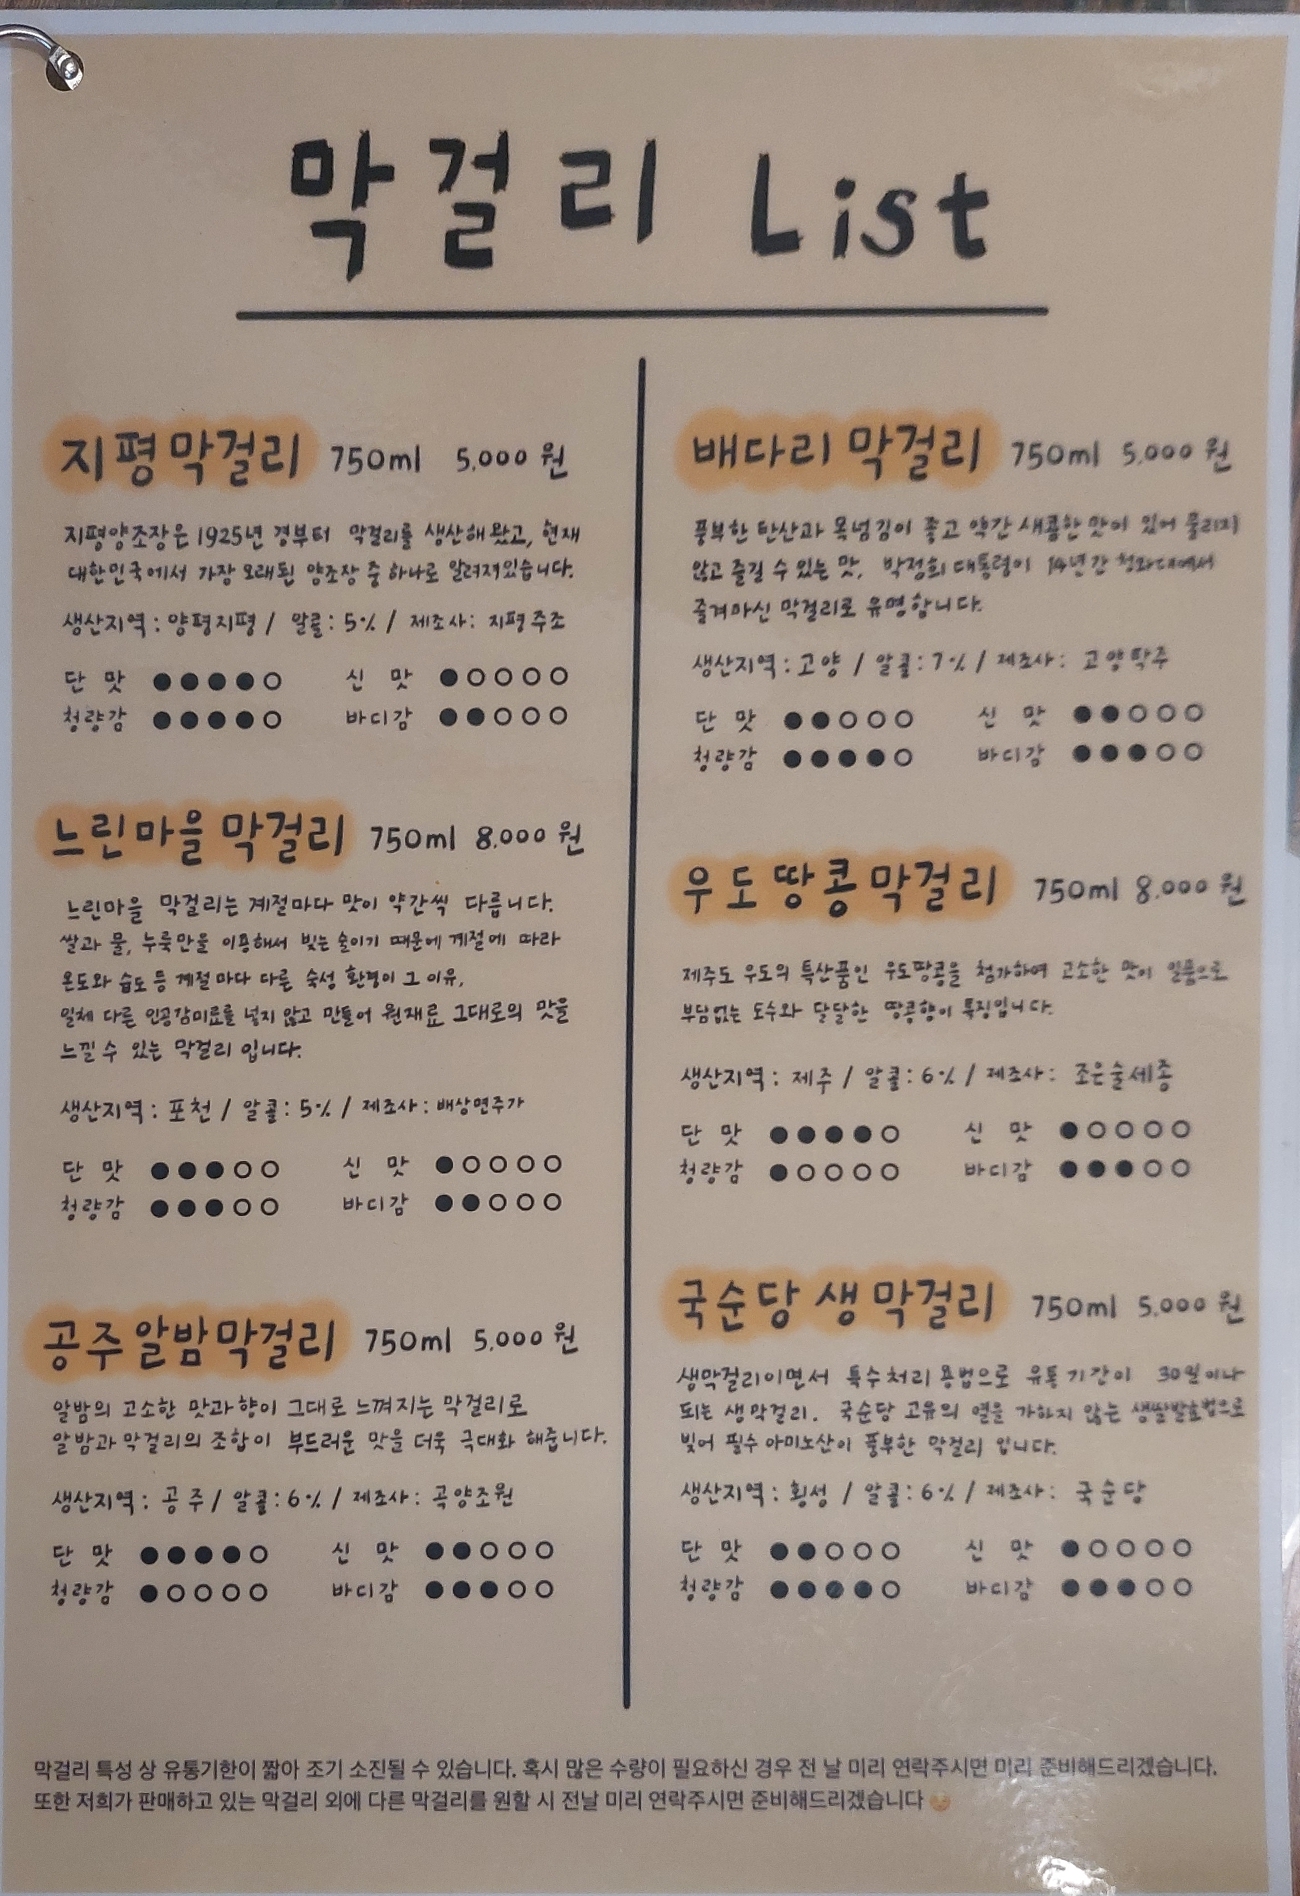 막걸리 List
지평막걸리 750ml 5,000원
지평양조장은 1925년 경부터 막걸리를 생산해 왔고, 현재
대한민국에서 가장 오래된 양조장 중 하나로 알려져있습니다.
생산지역 : 양평지평 / 알콜 : 5% / 제조사 : 지평주조
단 맛 ●●●●○ 신 맛 ●○○○○
청량감 ●●●●○ 바디감 ●●○○○
느린마을 막걸리 750ml 8,000원
느린마을 막걸리는 계절마다 맛이 약간씩 다릅니다.
쌀과 물, 누룩만을 이용해서 빚는 술이기 때문에 계절에 따라
온도와 습도 등 계절마다 다른 숙성 환경이 그 이유,
일체 다른 인공감미료를 넣지 않고 만들어 원재료 그대로의 맛을
느낄 수 있는 막걸리 입니다.
생산지역 : 포천 / 알콜 : 5% / 제조사 : 배상면주가
단 맛 ●●●○○ 신 맛 ●○○○○
청량감 ●●●○○ 바디감 ●●○○○
공주알밤막걸리 750ml 5,000원
알밤의 고소한 맛과 향이 그대로 느껴지는 막걸리로
알밤과 막걸리의 조합이 부드러운 맛을 더욱 극대화 해줍니다.
생산지역 : 공주 / 알콜 : 6% / 제조사 : 곡양조원
단 맛 ●●●●○ 신 맛 ●●○○○
청량감 ●○○○○ 바디감 ●●●○○
배다리 막걸리 750ml 5,000원
풍부한 탄산과 목넘김이 좋고 약간 새콤한 맛이 있어 물리지
않고 즐길 수 있는 맛, 박정희 대통령이 14년간 청와대에서
즐겨마신 막걸리로 유명합니다.
생산지역 : 고양 / 알콜 : 7% / 제조사 : 고양탁주
단 맛 ●●○○○ 신 맛 ●●○○○
청량감 ●●●●○ 바디감 ●●●○○
우도땅콩막걸리 750ml 8,000원
제주도 우도의 특산품인 우도땅콩을 첨가하여 고소한 맛이 일품으로
부담없는 도수와 달달한 땅콩향이 특징입니다.
생산지역 : 제주 / 알콜 : 6% / 제조사 : 조은술세종
단 맛 ●●●●○ 신 맛 ●○○○○
청량감 ●○○○○ 바디감 ●●●○○
국순당 생 막걸리 750ml 5,000원
생막걸리이면서 특수처리 용법으로 유통기간이 30일이나
되는 생막걸리. 국순당 고유의 열을 가하지 않는 생쌀발효법으로
빚어 필수 아미노산이 풍부한 막걸리 입니다.
생산지역 : 횡성 / 알콜 : 6% / 제조사 : 국순당
단 맛 ●●○○○ 신 맛 ●○○○○
청량감 ●●●●○ 바디감 ●●●○○
막걸리 특성 상 유통기한이 짧아 조기 소진될 수 있습니다. 혹시 많은 수량이 필요하신 경우 전 날 미리 연락주시면 미리 준비해드리겠습니다.
또한 저희가 판매하고 있는 막걸리 외에 다른 막걸리를 원할 시 전날 미리 연락주시면 준비해드리겠습니다